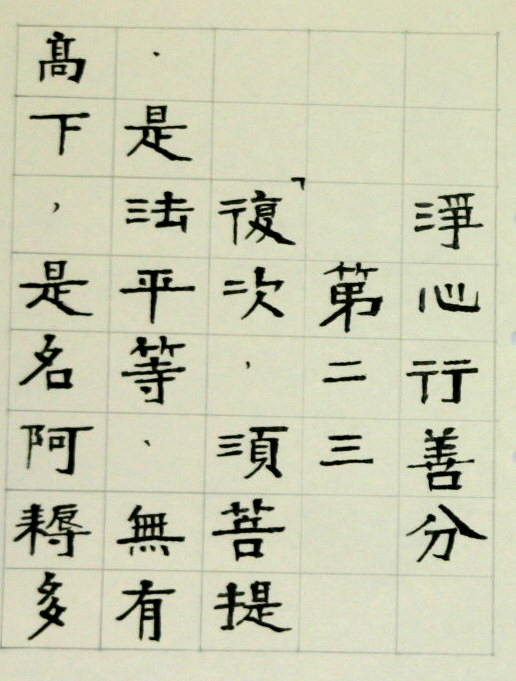 淨心行善分
第二三
「復次,須菩提
.是法平等、無有
高下,是名阿耨多